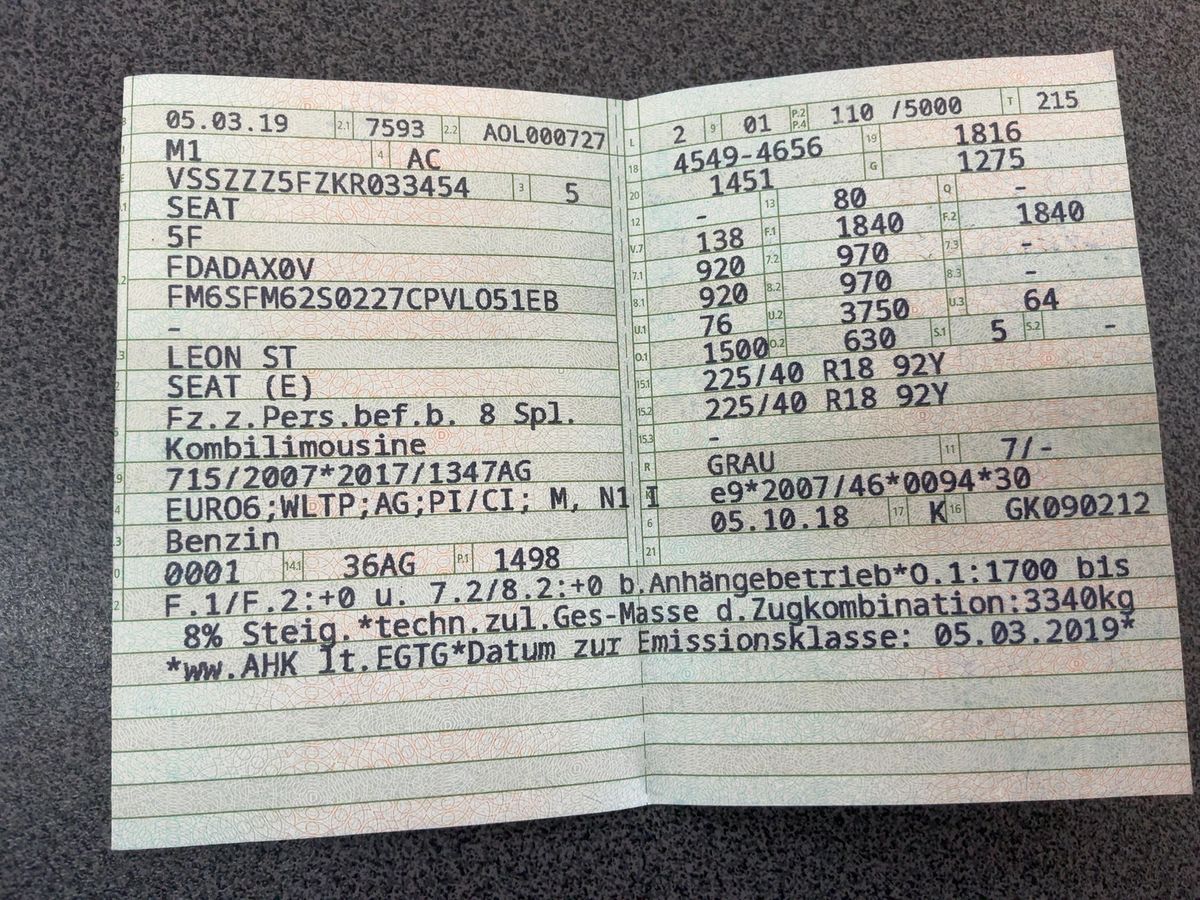 05.03.19 2.1 7593 2.2 AOL000727
M1 4 AC
VSSZZZ5FZKR033454 3 5
SEAT
5F
FDADAX0V
FM6SFM62S0227CPVLO51EB
-
LEON ST
SEAT (E)
Fz.z.Pers.bef.b. 8 Spl.
Kombilimousine
715/2007*2017/1347AG
EURO6;WLTP;AG;PI/CI; M, N1 I
Benzin
0001 14.1 36AG P.1 1498
L 2 9 01 P.2 P.4 110 /5000 T 215
18 4549-4656 19 1816
20 1451 G 1275
12 - 13 80 Q -
V.7 138 F.1 1840 F.2 1840
7.1 920 7.2 970 7.3 -
8.1 920 8.2 970 8.3 -
U.1 76 U.2 3750 U.3 64
O.1 1500 O.2 630 S.1 5 S.2 -
15.1 225/40 R18 92Y
15.2 225/40 R18 92Y
15.3 -
R GRAU 11 7/-
e9*2007/46*0094*30
6 05.10.18 17 K 16 GK090212
21
F.1/F.2:+0 u. 7.2/8.2:+0 b.Anhängebetrieb*O.1:1700 bis
8% Steig.*techn.zul.Ges-Masse d.Zugkombination:3340kg
*ww.AHK lt.EGTG*Datum zur Emissionsklasse: 05.03.2019*